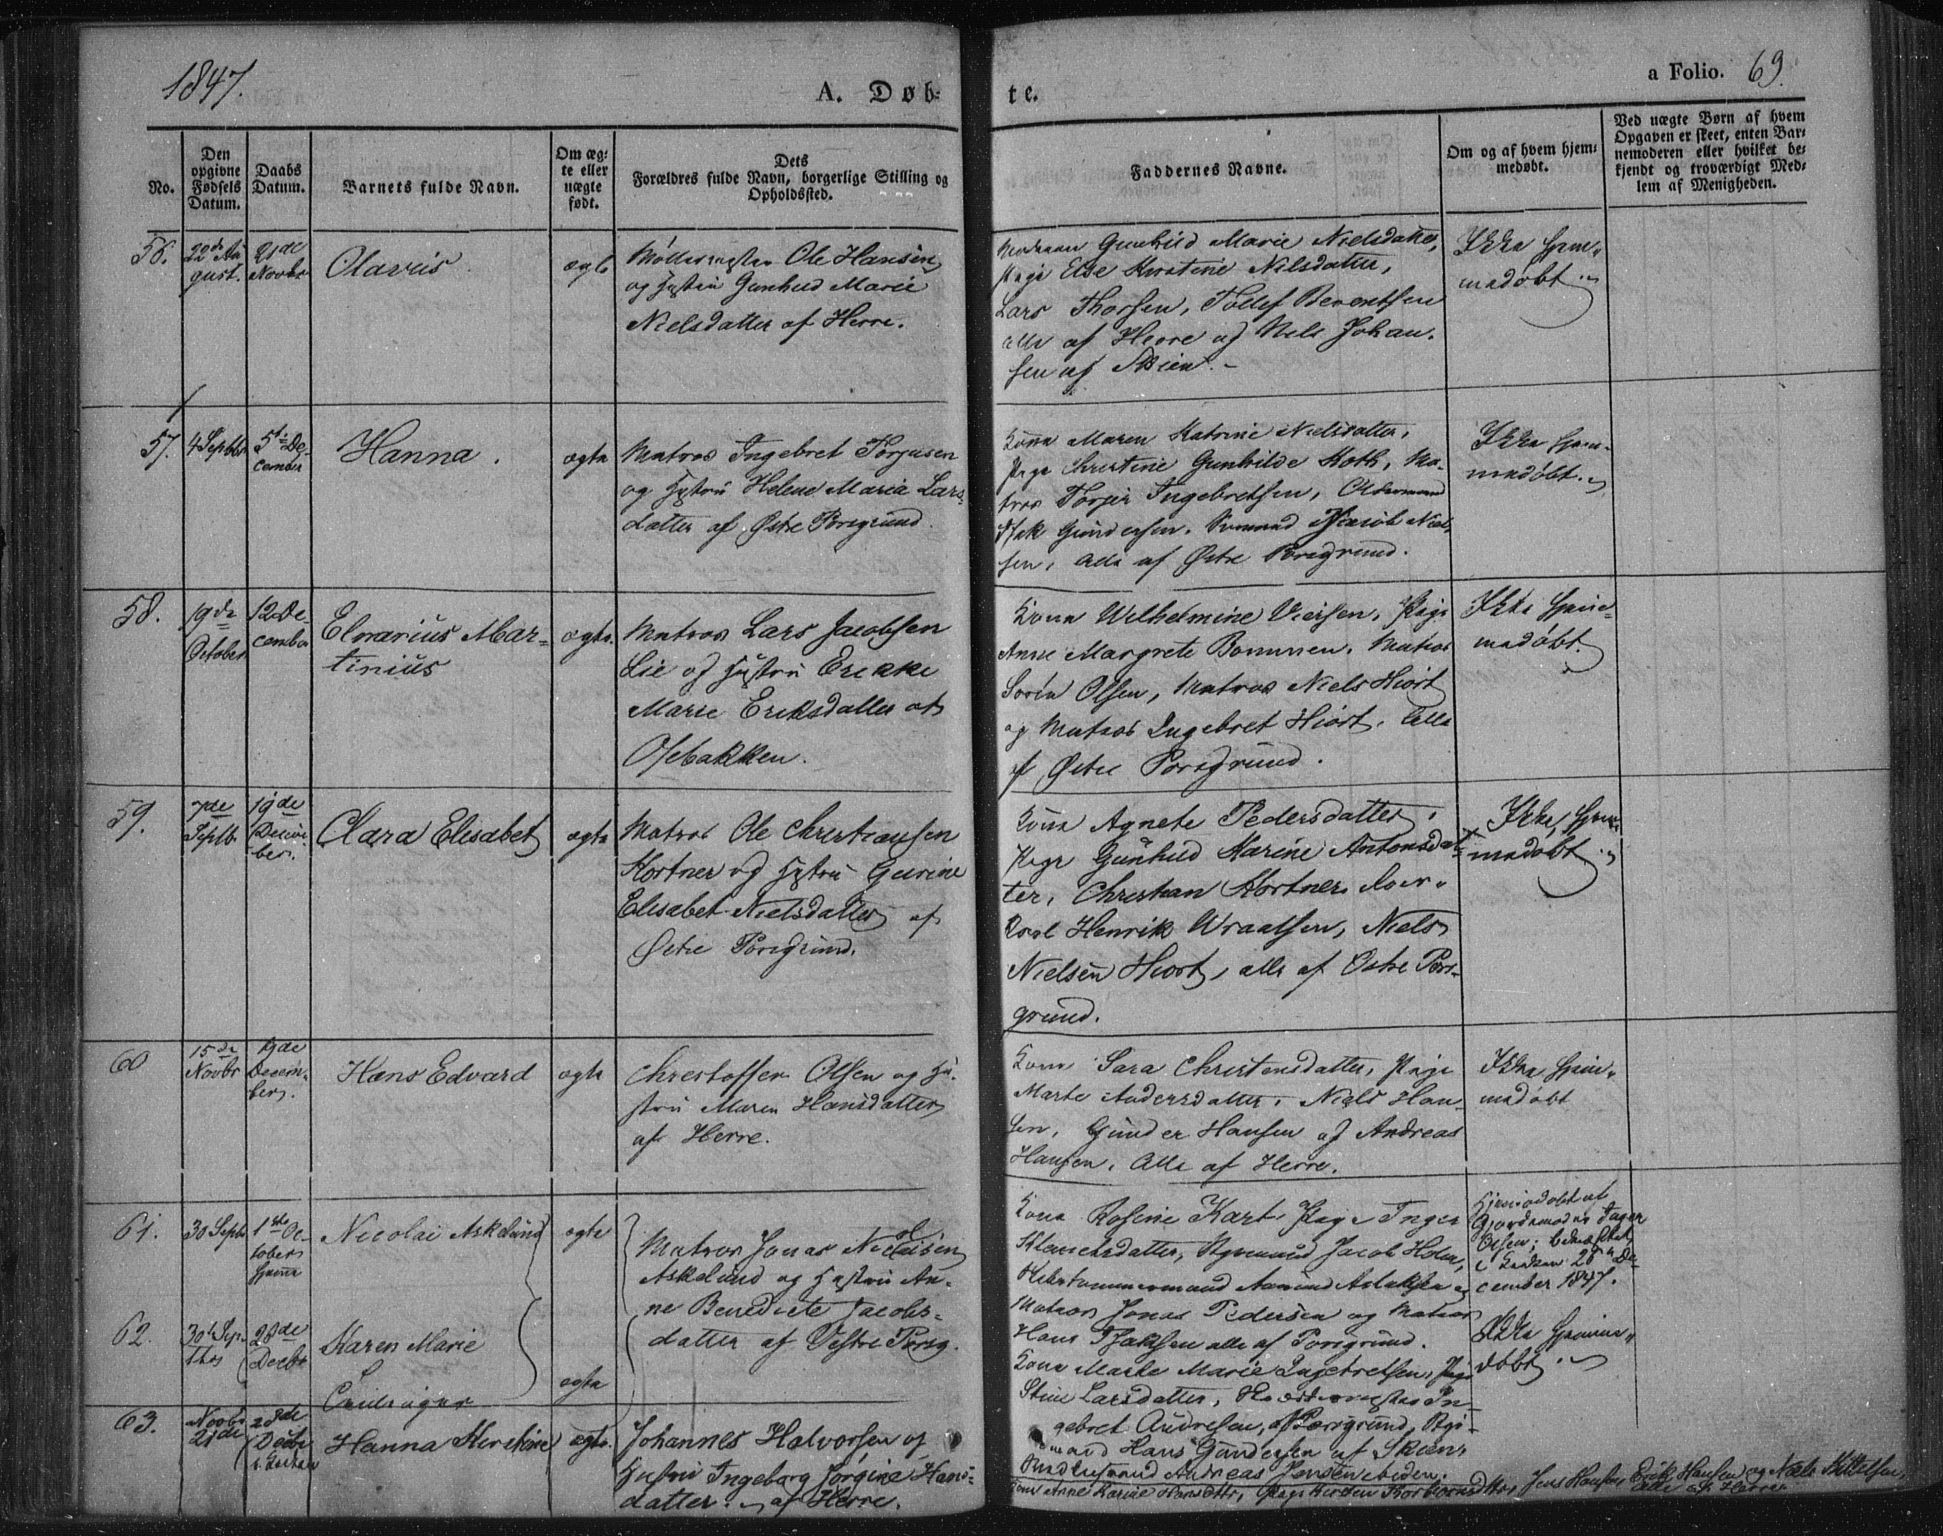 1847.
A. Døb-
te.
a Folio. 69.
No.
Den
opgivne
Fødsels
Datum.
Daabs
Datum.
Barnets fulde Navn.
Om æg-
te eller
uægte
født.
Dets
Forældres fulde Navn, borgerlige Stilling og
Opholdssted.
Faddernes Navne.
Om og af hvem hjem-
medøbt.
Ved uægte Børn af hvem
Opgaven er skeet, enten Bar-
nemoderen eller hvilket be-
kjendt og troværdigt Med-
lem af Menigheden.
56.
22de Au
gust.
21de
Novbr
Olavus
ægte
Møllermester Ole Hansen
og Hustru Gunhild Marie
Nielsdatter af Herre.
Gunhild Marie Nielsdatter,
Pige Else Kirstine Nilsdatter,
Lars Thorsen, Tollef Berentsen
alle af Herre og Nels Johan-
sen af Skien.
Ikke hjem-
medøbt
57.
4 Septbr
5te De-
cember
Hanna.
ægte
Matros Ingebret Torjusen
og Hustru Helene Maria Lars-
datter af Østre Porsgrund.
Kona Maren Katrine Nielsdatter,
Pige Christine Gunhilde Koth, Ma-
tros Torjer Ingebretsen, Oldermand
Isak Gundersen, Jacob Niel-
sen, alle af Østre Porsgrund.
Ikke hjem-
medøbt
58.
19de
October
12 De-
cember
Elvarius Mar-
tinius
ægte
Matros Lars Jacobsen
Lie og Hustru Erikke
Marie Eriksdatter af
Osebakken.
Kona Wilhelmine Viersen, Pige
Anne Margrete Bommen, Matros
Sørin Olsen, Matros Niels Hiort
og Matros Ingebret Hiort, alle
af Østre Porsgrund.
Ikke hjem-
medøbt.
59.
7de
Septb
19de
Decem-
ber.
Clara Elisabet
ægte
Matros Ole Christiansen
Kortner og Hustru Gurine
Elisabet Nielsdatter af
Østre Porsgrund.
Kona Agnete Pedersdatter,
Pige Gunhild Marine Antonsdat-
ter, Christian Kortner,
Henrik Wraalsen, Niels
Nielsen Hiort, alle af Østre Pors-
grund.
Ikke hjem-
medøbt
60
15de
Novbr
19de
Decem-
ber.
Hans Edvard
ægte
Christoffer Olsen og Hu-
stru Maren Hansdatter
af Herre.
Kona Sara Christensdatter, Pige
Marte Andersdatter, Niels Han-
sen, Gunder Hansen og Andreas
Hansen, alle af Herre.
Ikke hjem-
medøbt
61.
30 Septb
1ste Oc-
tober
hjem
Nicolai Askelund
ægte
Matros Jonas Nicolaisen
Askelund og Hustru An-
ne Benedicte Jacobs-
datter af Vestre Porsg.
Kona Rosine Kart, Pige Inger
Jacob Holm,
Aamund Aslaksen og
Matros Jonas Pedersen og Matros
Hans Isaksen alle af Porsgrund.
Hjemmedøbt af
Gjordemoder Inger
Olsen; bekræftet
i Kirken 28de De-
cember 1847.
62.
30te Sep-
tbr
28de
Decbr
Karen Marie
Tvillinger
ægte
Kona Marte Marie Ingebretsen, Pige
Stine Larsdatter, In-
gebret Andresen, af Porsgrund,
mand Hans Gundersen af Skien,
Andreas Jensen
Ikke hjemme-
døbt.
63.
Novbr
21de
28de
Decbr
i Kirken
Hanna Kirstine
ægte
Johannes Halvorsen og
Hustru Ingeborg Jørgine Hans-
datter af Herre.
Kona Anne Karine Hansdatter, Pige Kirsten Thorbjørnsdatter, Jens Hansen, Erik Hansen og Niels Kittelsen,
alle af Herre.